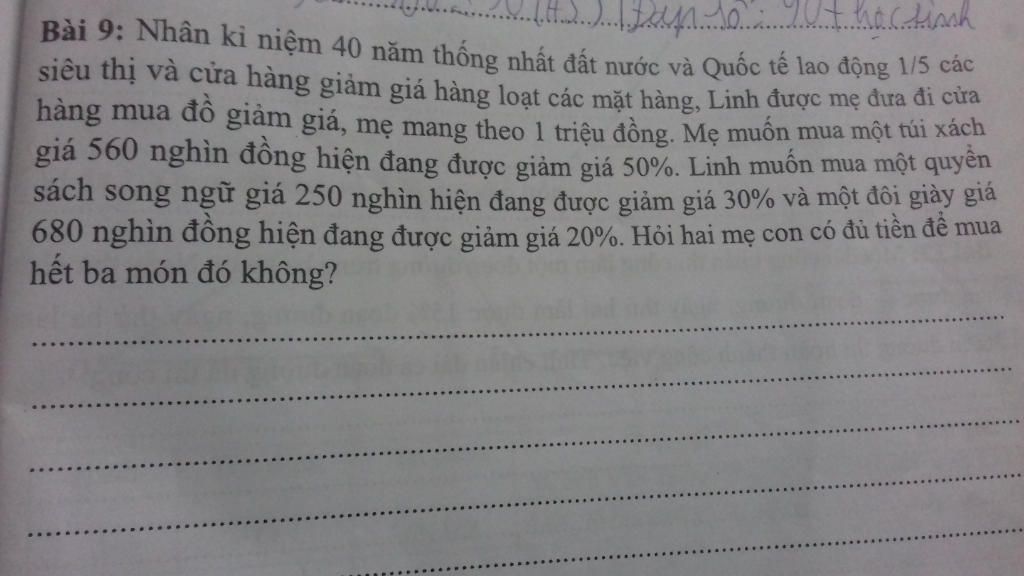 Đáp số: 90 học sinh
Bài 9: Nhân kỉ niệm 40 năm thống nhất đất nước và Quốc tế lao động 1/5 các
siêu thị và cửa hàng giảm giá hàng loạt các mặt hàng, Linh được mẹ đưa đi cửa
hàng mua đồ giảm giá, mẹ mang theo 1 triệu đồng. Mẹ muốn mua một túi xách
giá 560 nghìn đồng hiện đang được giảm giá 50%. Linh muốn mua một quyển
sách song ngữ giá 250 nghìn hiện đang được giảm giá 30% và một đôi giày giá
680 nghìn đồng hiện đang được giảm giá 20%. Hỏi hai mẹ con có đủ tiền để mua
hết ba món đó không?